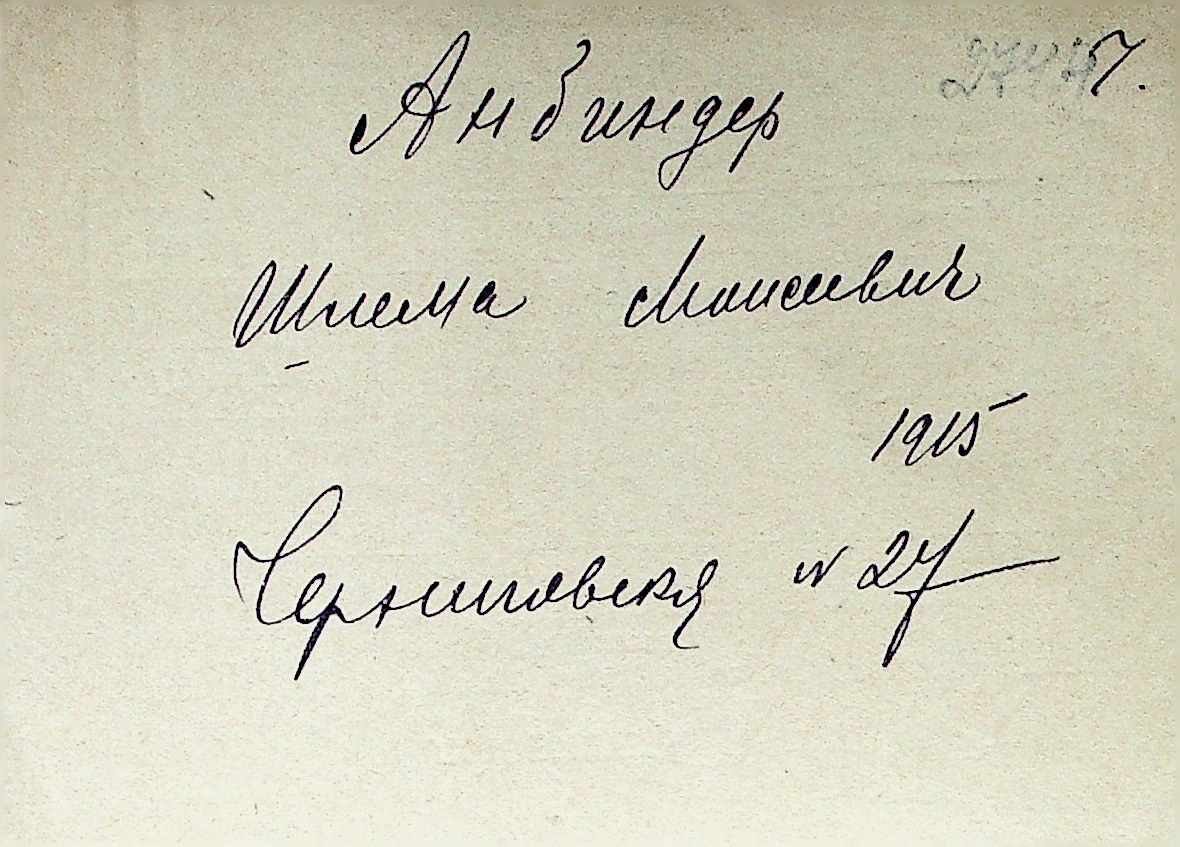 7.
Анбиндер
Шлема Моисеевич
1915
Черниговская № 27